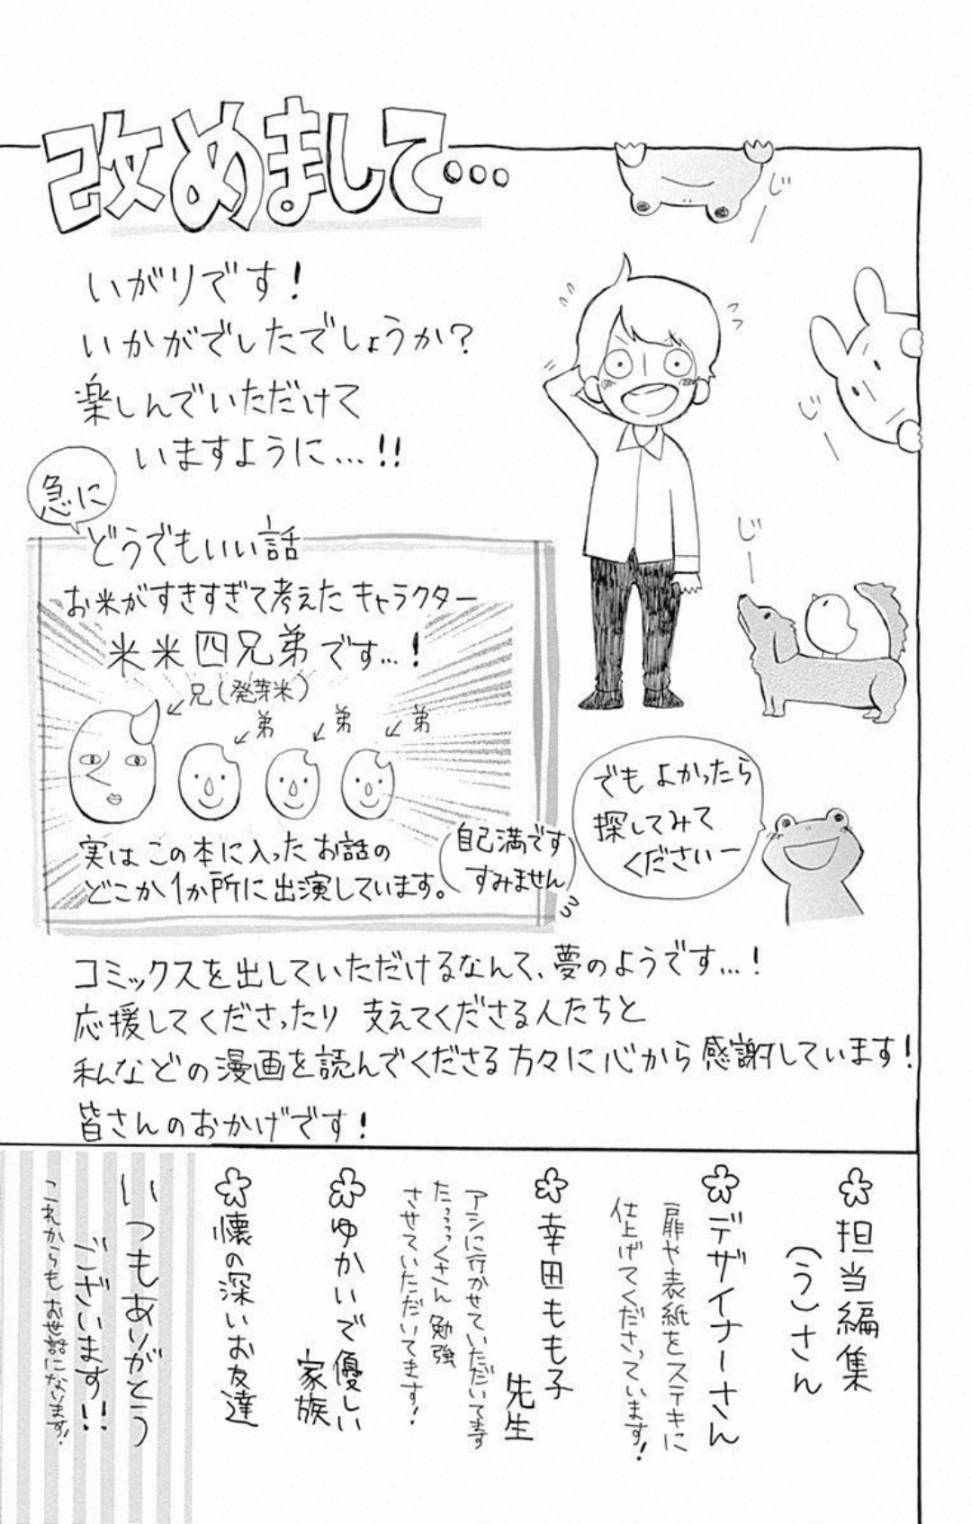 改めまして…
いがりです！
いかがでしたでしょうか？
楽しんでいただけて
いますように…!!
じーっ
じー
じー
急に
どうでもいい話
お米がすきすぎて考えたキャラクター
米米四兄弟です…！
兄(発芽米)
弟
弟
弟
実はこの本に入ったお話の
どこか1か所に出演しています。
(自己満です
すみません)
でもよかったら
探してみて
くださいー
コミックスを出していただけるなんて、夢のようです…！
応援してくださったり 支えてくださる人たちと
私などの漫画を読んでくださる方々に心から感謝しています！
皆さんのおかげです！
担当編集
(う)さん
デザイナーさん
扉や表紙をステキに
仕上げてくださっています！
幸田もも子
先生
アシに行かせていただいてます
たっっっくさん 勉強
させていただいてきます！
ゆかいで優しい
家族
懐の深いお友達
いつもありがとう
ございます!!
これからもお世話になります！